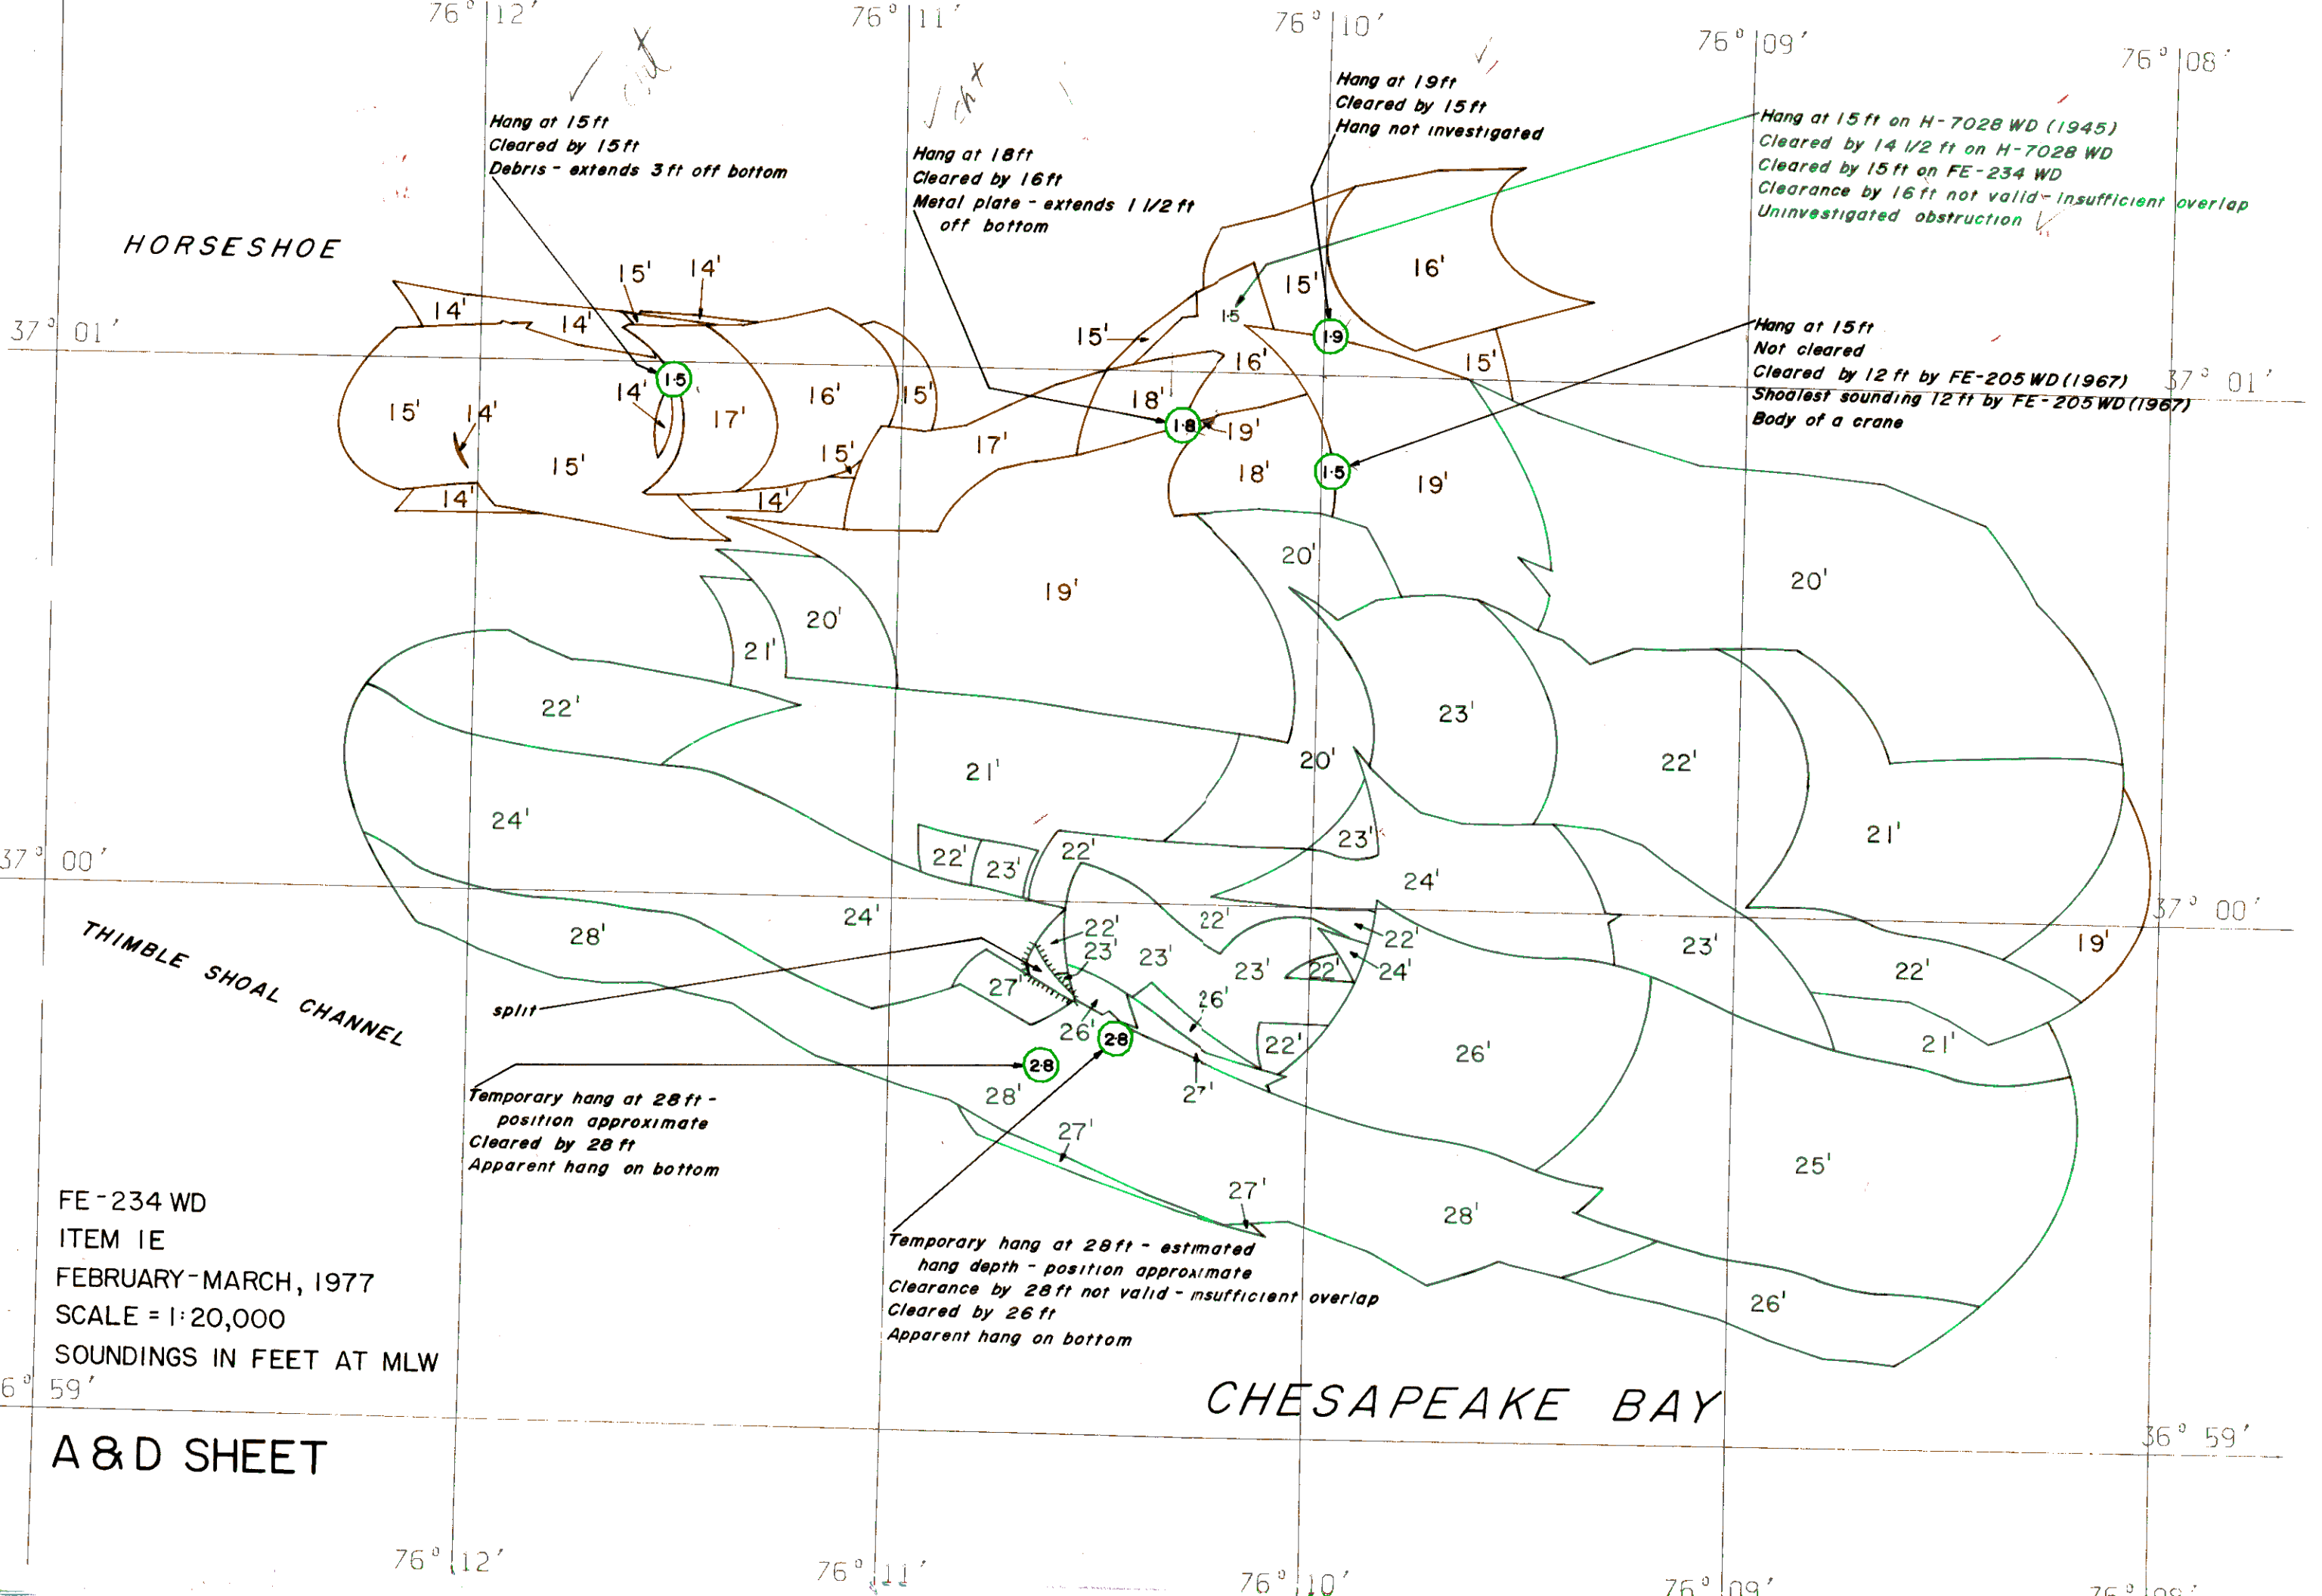 76° 12'
76° 11'
76° 10'
76° 09'
76° 08'
Hang at 15 ft
Cleared by 15 ft
Debris - extends 3 ft off bottom
Hang at 18 ft
Cleared by 16 ft
Metal plate - extends 1 1/2 ft
off bottom
Hang at 19 ft
Cleared by 15 ft
Hang not investigated
Hang at 15 ft on H-7028 WD (1945)
Cleared by 14 1/2 ft on H-7028 WD
Cleared by 15 ft on FE-234 WD
Clearance by 16 ft not valid - insufficient overlap
Uninvestigated obstruction
HORSESHOE
15' 14'
14' 14'
15' 16'
37° 01'
15' 1.5 1.9
Hang at 15 ft
Not cleared
Cleared by 12 ft by FE-205 WD (1967)
Shoalest sounding 12 ft by FE-205 WD (1967)
Body of a crane
37° 01'
16' 15'
1.5 14' 16' 15' 18'
15' 14' 17' 17' 1.8 19'
15' 15' 18' 1.5 19'
14' 14'
20'
19' 20'
20'
21'
22' 23'
21' 20' 22'
24' 23' 21'
37° 00'
22' 23' 22' 24'
37° 00'
24' 22' 22' 22'
THIMBLE SHOAL CHANNEL
28' 23' 23' 23' 22' 24' 23' 22' 19'
27' 26' 26'
split
2.8 2.8 22' 26' 21'
28' 27'
Temporary hang at 28 ft -
position approximate
Cleared by 28 ft
Apparent hang on bottom
27'
27' 28' 25'
26'
Temporary hang at 28 ft - estimated
hang depth - position approximate
Clearance by 28 ft not valid - insufficient overlap
Cleared by 26 ft
Apparent hang on bottom
FE-234 WD
ITEM 1E
FEBRUARY-MARCH, 1977
SCALE = 1:20,000
SOUNDINGS IN FEET AT MLW
6° 59'
CHESAPEAKE BAY
36° 59'
A & D SHEET
76° 12'
76° 11'
76° 10'
76° 09'